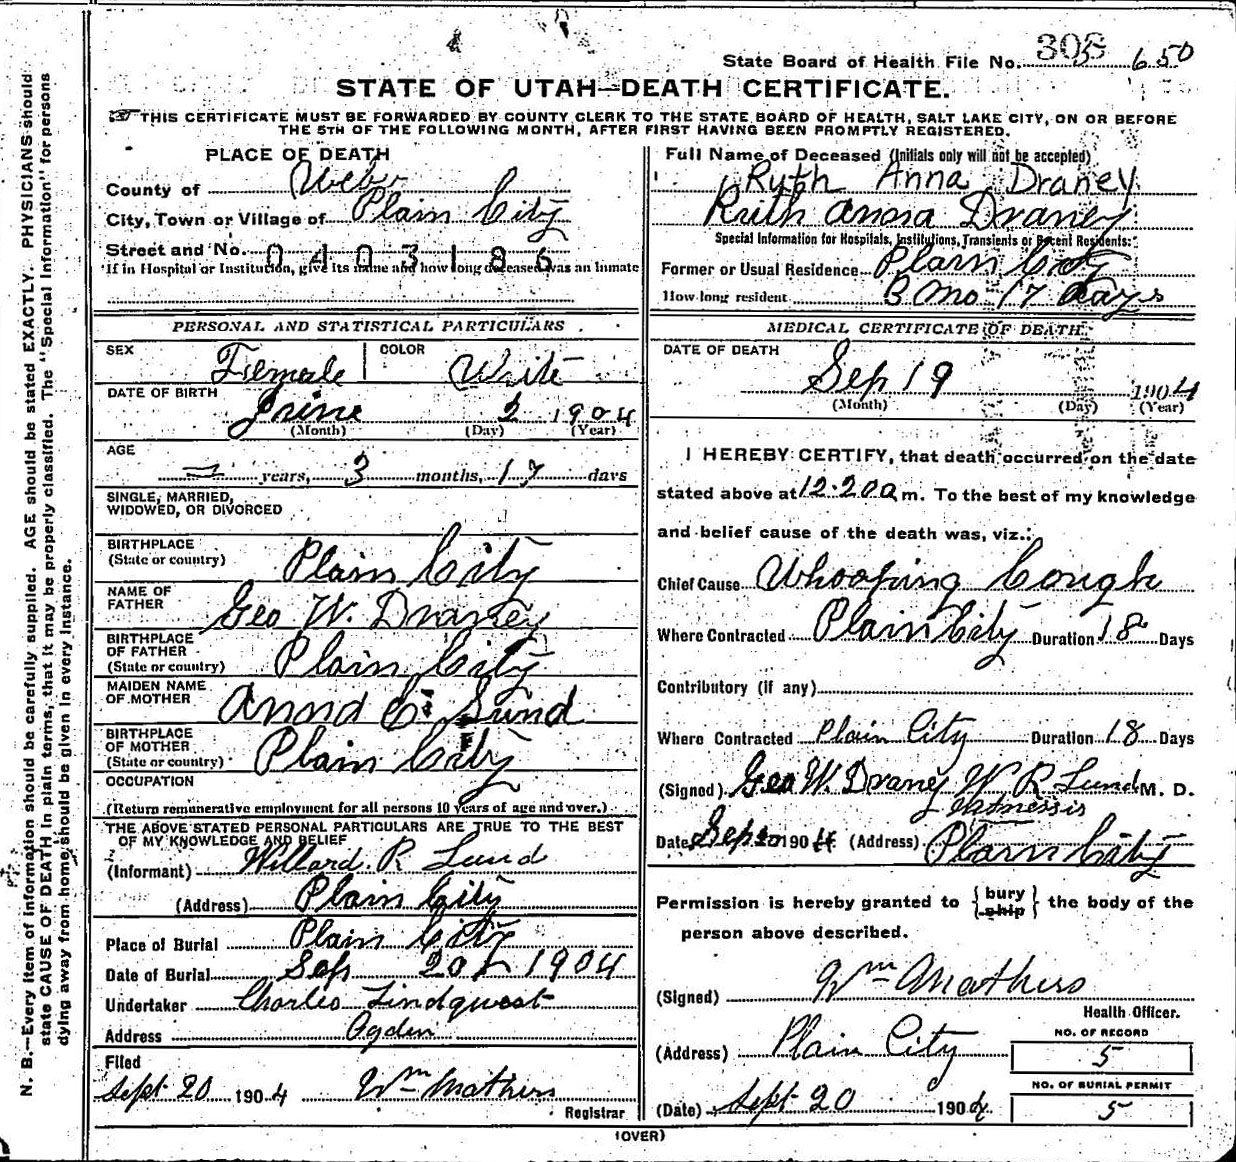 State Board of Health File No. 305 650
STATE OF UTAH—DEATH CERTIFICATE.
THIS CERTIFICATE MUST BE FORWARDED BY COUNTY CLERK TO THE STATE BOARD OF HEALTH, SALT LAKE CITY, ON OR BEFORE
THE 5TH OF THE FOLLOWING MONTH, AFTER FIRST HAVING BEEN PROMPTLY REGISTERED.
N. B.—Every item of information should be carefully supplied. AGE should be stated EXACTLY. PHYSICIANS should
state CAUSE OF DEATH in plain terms, that it may be properly classified. The "Special Information" for persons
dying away from home should be given in every instance.
PLACE OF DEATH
County of Weber
City, Town or Village of Plain City
Street and No. 0403186
If in Hospital or Institution, give its name and how long deceased was an inmate
PERSONAL AND STATISTICAL PARTICULARS.
SEX Female COLOR White
DATE OF BIRTH June 2 1904
(Month) (Day) (Year)
AGE
— years, 3 months, 17 days
SINGLE, MARRIED,
WIDOWED, OR DIVORCED
BIRTHPLACE
(State or country) Plain City
NAME OF
FATHER Geo W. Draney
BIRTHPLACE
OF FATHER
(State or country) Plain City
MAIDEN NAME
OF MOTHER C. Lund
BIRTHPLACE
OF MOTHER
(State or country) Plain City
OCCUPATION
(Return remunerative employment for all persons 10 years of age and over.)
THE ABOVE STATED PERSONAL PARTICULARS ARE TRUE TO THE BEST
OF MY KNOWLEDGE AND BELIEF
(Informant) Willard. R Lund
(Address) Plain City
Place of Burial Plain City
Date of Burial Sep 20 1904
Undertaker Charles Lindquest
Address Ogden
Filed
Sept 20 1904 Wm Mathers
Registrar
Full Name of Deceased (Initials only will not be accepted)
Ruth Anna Draney
Ruth Anna Draney
Special Information for Hospitals, Institutions, Transients or Recent Residents:
Former or Usual Residence Plain City
How long resident 3 Mo 17 days
MEDICAL CERTIFICATE OF DEATH.
DATE OF DEATH
Sep 19 1904
(Month) (Day) (Year)
I HEREBY CERTIFY, that death occurred on the date
stated above at 12.20 a m. To the best of my knowledge
and belief cause of the death was, viz.:
Chief Cause Whooping Cough
Where Contracted Plain City Duration 18 Days
Contributory (if any)
Where Contracted Plain City Duration 18 Days
(Signed) Geo W. Draney W R Lund M. D.
Date Sep 20 1904 (Address) Plain City
Permission is hereby granted to {bury ship} the body of the
person above described.
(Signed) Wm Mathers
Health Officer.
(Address) Plain City
NO. OF RECORD
5
NO. OF BURIAL PERMIT
5
(Date) Sept 20 1904
(OVER)